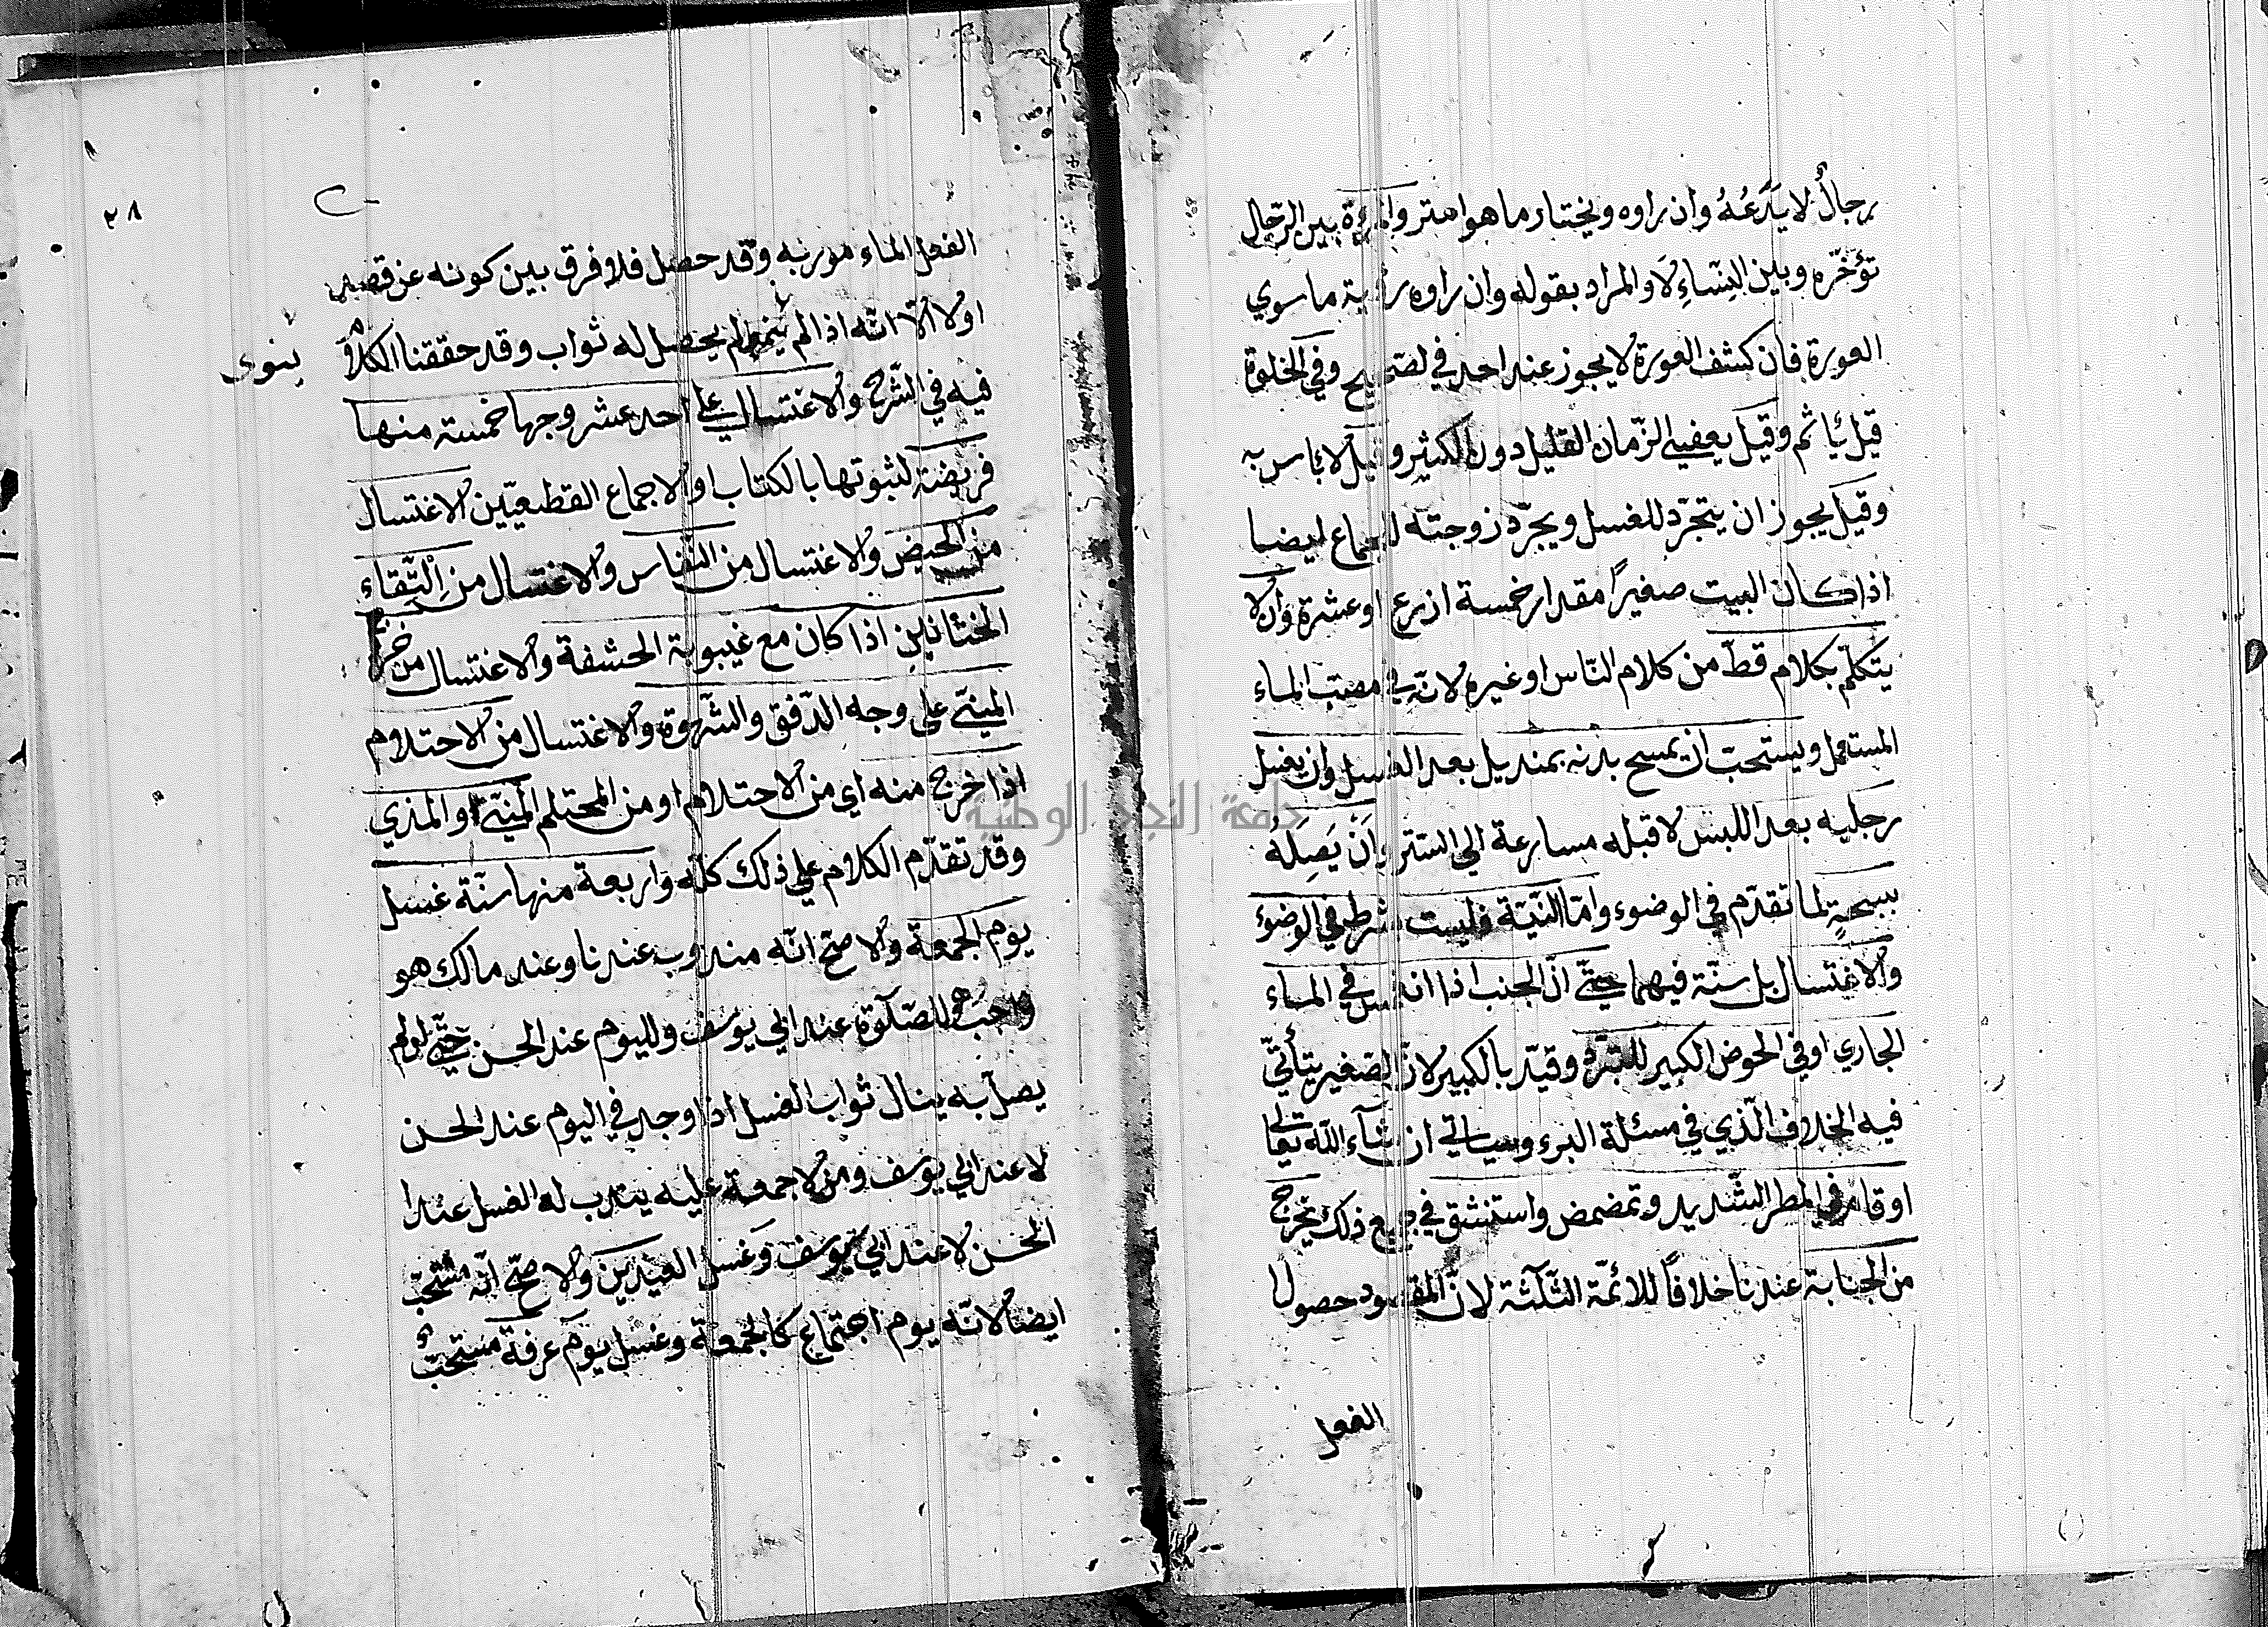 رجالٌ لا يَدَعُهُ وان راوه ويختار ما هو استر والمرءة بين الرّجال
تؤخّره وبين النِسَاءِ لَا والمراد بقوله وان راوه رؤية ما سوي
العورة فان كشف العورة لا يجوز عند احد في لصحيح وفي الخلوة
قيل يأثم وقيل يعفي في الزّمان القليل دون الكثير وقيل لا بأس به
وقيل يجوز ان يتجرّد للغسل ويجرّد زوجته للجماع ايضا
اذا كان البيت صغيرًا مقدار خمسة اذرع او عشرة وان لا
يتكلّم بكلام قطّ من كلام النّاس او غيره لانّه في مصبّ الماء
المستعمل ويستحبّ ان يمسح بدنه بمنديل بعد الغسل وان يغسل
رجليه بعد اللبس لا قبله مسارعة الي الستر وَاَنْ يَصِلَهُ
بسبحةٍ لما تقدّم في الوضوء وامّا النّيّة فليست بشرط في الوضوء
والاغتسال بل سنّة فيهما حتّي انّ الجنب اذا انغمس في الماء
الجاري او في الحوض الكبير للتبرّد وقيّد بالكبير لانّ لصغير يتأتّي
فيه الخلاف الّذي في مسئلة البرء وسياتي ان شآء اللّه تعالي
او قام في المطر الشّديد وتمضمض واستنشق في جميع ذلك يخرج
من الجنابة عندنا خلافًا للائمّة الثّلثة لانّ المقصود حصول
الفعل
٢٨
الفعل الماء مورنبه وقد حصل فلا فرق بين كونه عن قصد
اولا الّا انّه اذا لم ينو لم يحصل له ثواب وقد حققنا الكلام
ينوى
فيه في الشّرح والاغتسال علي احد عشر وجها خمسة منها
فريضة لثبوتها بالكتاب او الاجماع القطعيّين الاغتسال
من الحيض والاغتسال من النّفاس والاغتسال من اِلْتِقاء
الختانين اذا كان مع غيبوبة الحشفة والاغتسال من خروج
المنيّ علي وجه الدّفق والشّهوة والاغتسال من الاحتلام
اذا خرج منه اي من الاحتلام او من المحتلم المنيّ او المذي
وقد تقدّم الكلام علي ذلك كلّه واربعة منها سنّة غسل
يوم الجمعة والاصحّ انّه مندوب عندنا وعند مالك هو
واجب وهو للصّلوة عند ابي يوسف ولليوم عند الحسن حتّي لو لم
يصلّ به ينال ثواب الغسل اذا وجد في اليوم عند الحسن
لا عند ابي يوسف ومن لا جمعة عليه يندب له الغسل عند
الحسن لا عند ابي يوسف وغسل العيدين والاصحّ انّه مستحبّ
ايضا لانّه يوم اجتماع كالجمعة وغسل يوم عرفة مستحبّ